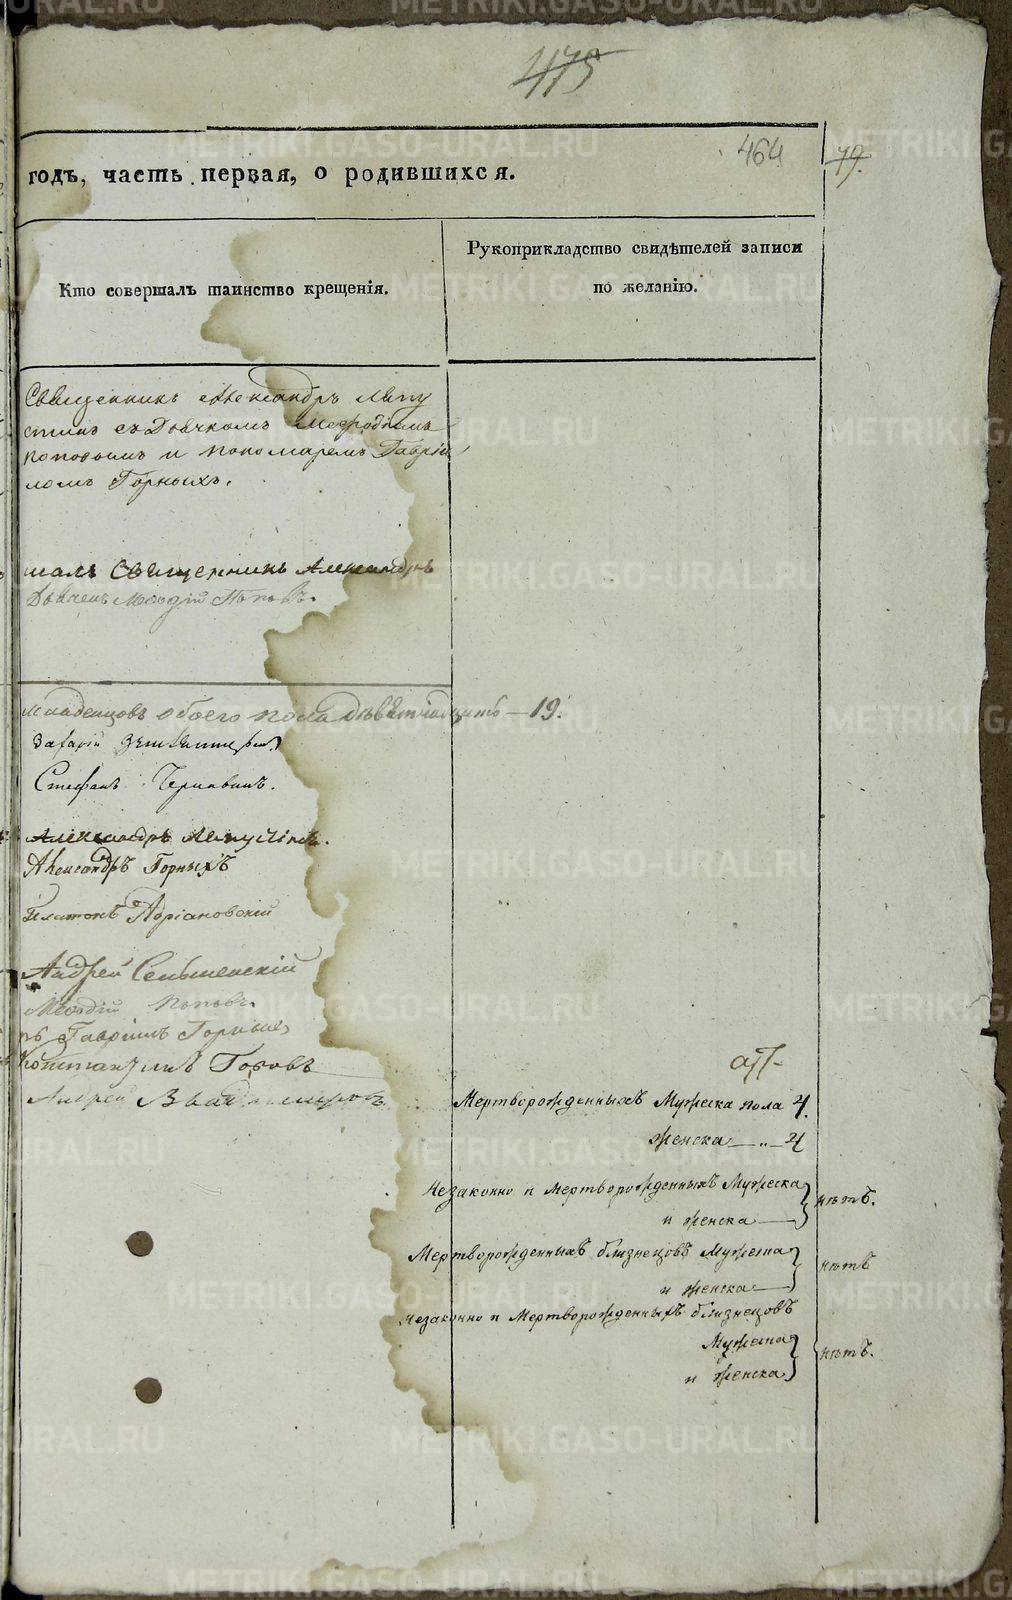 475
464
79.
годъ, часть первая, о родившихся.
Кто совершалъ таинство крещенія.
Рукоприкладство свидѣтелей записи
по желанію.
Священникъ Александръ Лепу
стинъ съ Дьячкомъ Меѳодіемъ
Поповымъ и пономаремъ Гаврїи
ломъ Горныхъ.
шалъ Священникъ Александръ
Дьячекъ Меѳодїй Поповъ.
младенцовъ обоего пола девятнадцать — 19.
Захарїй
Стефанъ
Александръ Лепустинъ.
Александръ Горныхъ
Платонъ Адріановскій
Андрей
Меѳодїй Поповъ.
ръ Гаврїилъ Горныхъ
Константинъ Поповъ
Андрей
Мертворожденныхъ Мужеска пола 4.
женска — „ — 4
Незаконно и Мертворожденныхъ Мужеска
и женска — нѣтъ.
Мертворожденныхъ близнецовъ Мужеска
и женска — нѣтъ
незаконно и Мертворожденныхъ близнецовъ
Мужеска
и женска нѣтъ.
METRIKI.GASO-URAL.RU